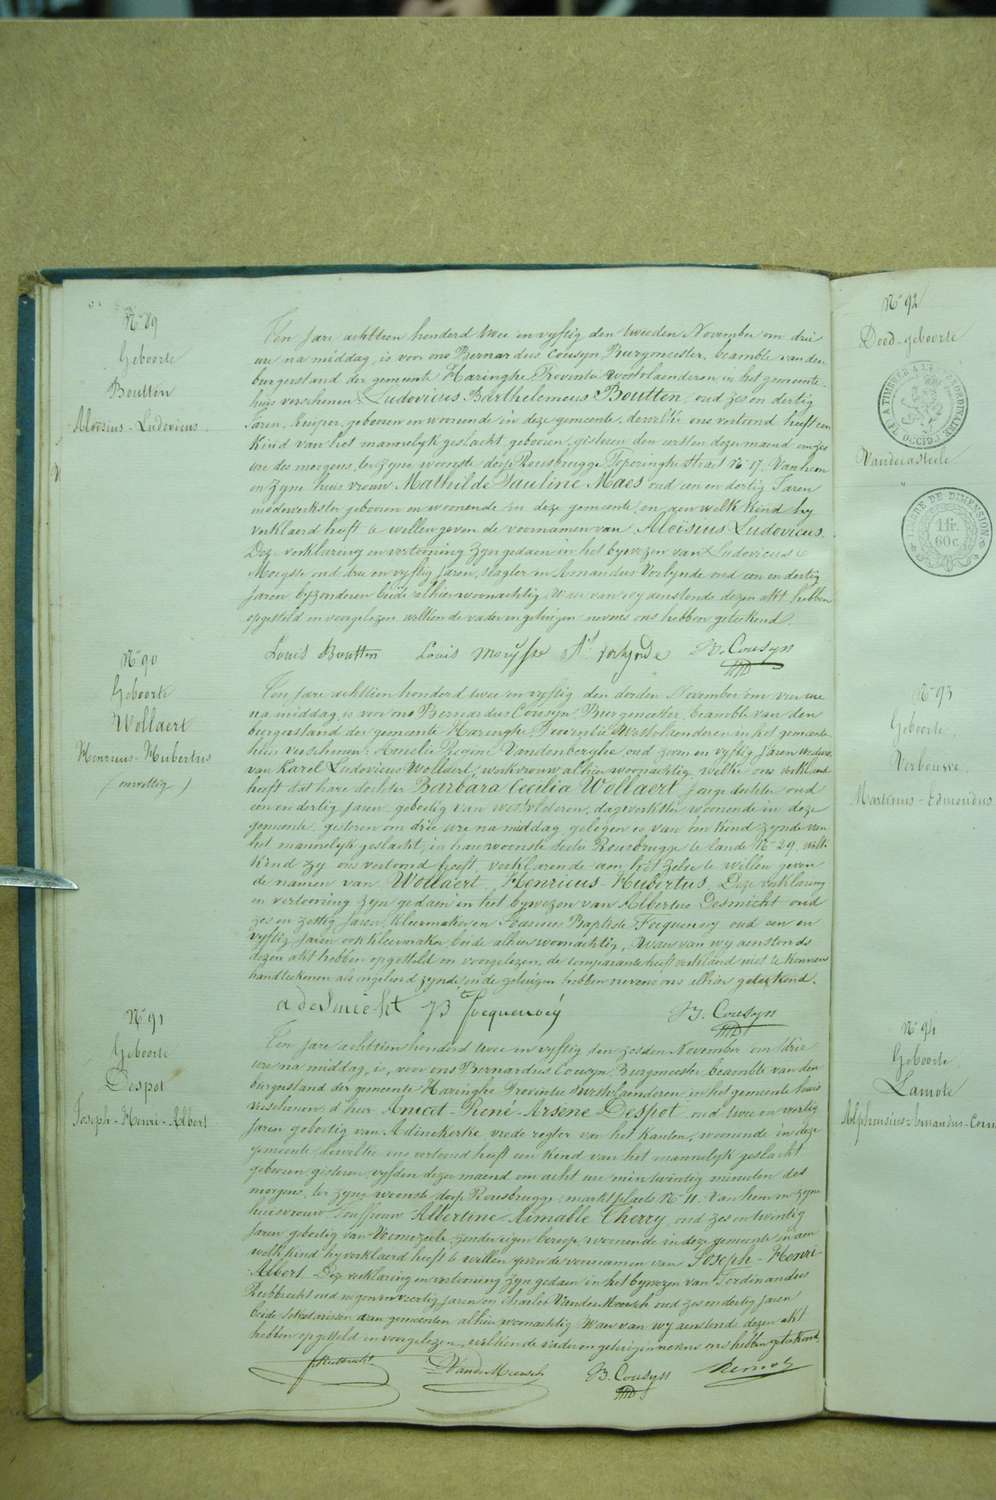 N° 89
Geboorte
Boutten
Aloisius-Ludovicus.
Ten Jare achttien honderd twee en vyftig den tweeden November om drie
ure na middag, is voor ons Bernardus Cousyn Burgmeester, beambte van den
burgerstand der gemeente Haringhe Provintie Westvlaenderen in het gemeente-
huis verschenen Ludovicus Barthelemeus Boutten, oud zes en dertig
Jaren, kuiper, geboren en woonende in deze gemeente, dewelke ons vertoond heeft een
kind van het mannelyk geslacht, geboren, gisteren den eersten dezer maand om zes
ure des morgens, ter zyne woonste dorp Rousbrugge Poperinghe straet N° 17. Van hem
en zyne huis vrouw Mathilde Pauline Maes oud een en dertig Jaren
medewerkster geboren en woonende in deze gemeente, en aen welk kind hy
verklaerd heeft te willen geven de voornamen van Aloisius Ludovicus.
Deze verklaering en vertooning zyn gedaen in het bywezen van Ludovicus
Moeysse oud drie en vyftig jaren, slagter en Amandus Verlynde oud een en dertig
jaren byzonderen beide alhier woonachtig, Waer van wy aenstonds dezen akt hebben
opgesteld en voorgelezen welken de vader en getuigen nevens ons hebben geteekend.
Louis Boutten Louis Moeysse A. Verlynde B. Cousyn
N° 90
Geboorte
Wollaert
Henricus-Hubertus
(onwettig)
Ten Jare achttien honderd twee en vyftig den derden November om vier ure
na middag, is voor ons Bernardus Cousyn Burgemeester, beambte van den
burgerstand der gemeente Haringhe Provintie Westvlaenderen in het gemeente-
huis verschenen Amelie Vandenberghe oud zeven en vyftig Jaren Weduwe
van Karel Ludovicus Wollaert, werkvrouw alhier woonachtig, welke ons verklaert
heeft dat hare dochter Barbara Cecilia Wollaert, jonge dochter oud
een en dertig jaren, geboortig van westvleteren, dagwerkster woonende in deze
gemeente, gisteren om drie ure na middag gelegen is van een kind zynde van
het mannelyk geslacht, in haer woonste Rousbrugge te lande N° 29, welk
kind zy ons vertoond heeft, verklaerende aen het zelve te willen geven
de namen van Wollaert, Henricus-Hubertus. Deze verklaering
en vertooning zyn gedaen in het bywezen van Albertus Desmicht oud
zes en zestig jaren, kleermaker en Joannes Baptiste Focquenoey oud een en
vyftig jaren ook kleermaker beide alhier woonachtig, Waer van wy aenstonds
dezen akt hebben opgesteld en voorgelezen, de comparante heeft verklaerd niet te konnen
handteekenen als ongeleerd zynde, en de getuigen hebben nevens ons alhier geteekend.
a desmicht JB focquenoey B. Cousyn
N° 91
Geboorte
Despot
Joseph-Henri-Albert
Ten Jare achttien honderd twee en vyftig den zesden November om drie
ure na middag, is, voor ons Bernardus Cousyn, Burgmeester beambte van den
burgerstand der gemeente Haringhe Provintie Westvlaenderen, in het gemeente huis
verschenen, d'heer Amcet-Piené-Arsene-Despot, oud twee en veertig
jaren geboortig van Adinckerke vrede regter van het kanton, woonende in deze
gemeente, dewelke ons vertoond heeft een kind van het mannelyk geslacht
geboren gisteren vyfden dezer maend om acht ure min twintig minuten des
morgens, ter zyne woonste dorp Rousbrugge, markt plaets N° 11. Van hem en zyne
huisvrouw Albertine Aimable Therry, oud zes en twintig
jaren geboortig van Voormezeele zonder eigen beroep woonende in deze gemeente en aen
welk kind hy verklaerd heeft te willen geven de voornamen van Joseph-Henri
Albert. Deze verklaering en vertooning zyn gedaen in het bywezen van Ferdinandus
Rubbrecht oud negen en veertig jaren en Charles VanderMeersch oud zes en dertig jaren
beide sekretarissen dezer gemeenten alhier woonachtig Waer van wy aenstonds dezen akt
hebben opgesteld en voorgelezen, welken de vader en getuigen nevens ons hebben geteekend
Rubbrecht VanderMeersch B. Cousyn
N° 92
Dood-geboorte
Vandecasteele
TIMBRE DE DIMENSION
1 fr.
60 c.
N° 93
Geboorte
Verbouwe
Martinus-Edmondus
N° 94
Geboorte
Lamote
Alphonsius-Amandus-Corn